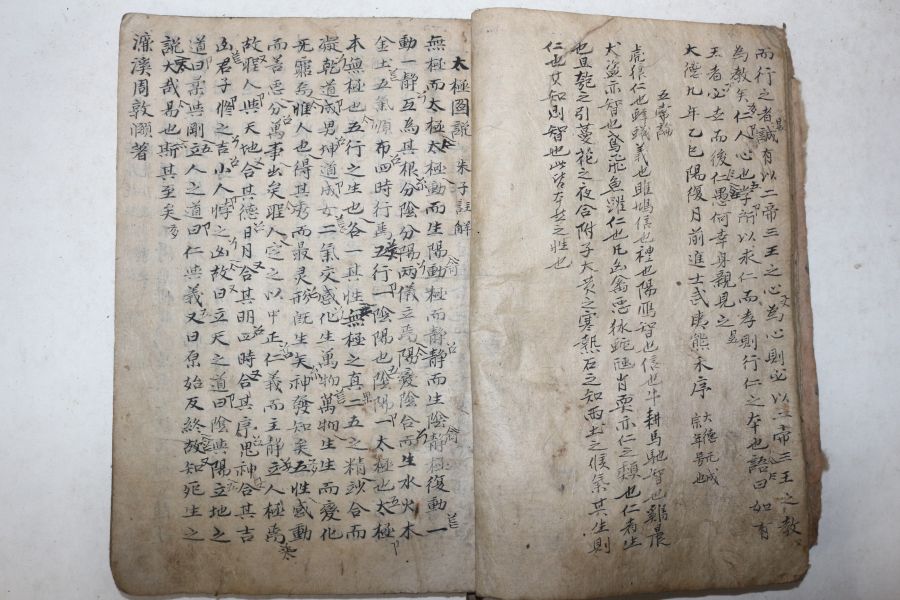 而行之者誠有以二帝三王之心為心則必以二帝三王之教
為教矣仁人心也学所以求仁而孝則行仁之本也語曰如有
王者必世而後仁愚何幸身親見之
大德九年乙巳陽復月前進士武夷熊禾序 大德元成宗年号也
五常論
虎狼仁也蜂蟻義也雎鳩信也禮也陽鴈智也信也牛耕馬馳智也雞晨
犬盜亦智也鳶飛魚躍仁也凡幽禽惡
仁也文知則智也此皆本然之性也
太極圖說 朱子註解
無極而太極太極動而生陽動極而静静而生陰静極復動一
動一静互為其根分陰分陽兩儀立焉陽變陰合而生水火木
金土五氣順布四時行焉五行一陰陽也陰陽一太極也太極
本無極也五行之生也各一其性無極之真二五之精妙合而
凝乾道成男坤道成女二氣交感化生萬物萬物生生而變化
无窮焉惟人也得其秀而最灵形既生矣神發知矣五性感動
而善惡分萬事出矣聖人定之以中正仁義而主静立人極焉
故聖人與天地合其德日月合其明四時合其序鬼神合其吉
凶君子修之吉小人悖之凶故曰立天之道曰陰與陽立地之
道曰柔與剛立人之道曰仁與義又曰原始反終故知死生之
說大哉易也斯其至矣
濂溪周敦頤著